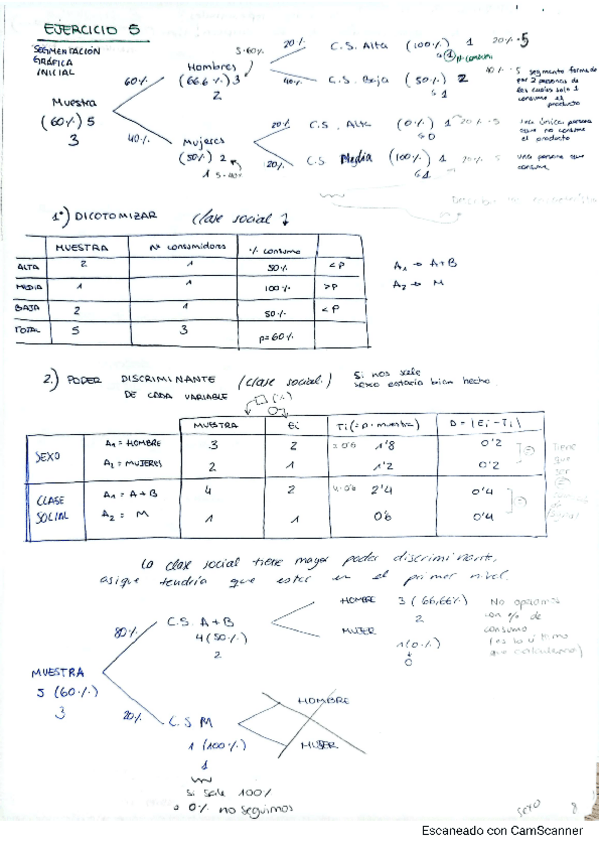 EJERCICIO 5
SEGMENTACIÓN
GRÁFICA
INICIAL
Muestra
(60%) 5
3
60%
40%
Hombres
(66.6%) 3
2
5·60%
Mujeres
(50%) 2
1 5·40%
20% C.S. Alta (100%) 1 20%·5
40% C.S. Baja (50%) 2 40%·5 segmento formado
por 2 personas de
los cuales solo 1
consume el
producto
20% C.S. Alta (0%) 1 20%·5
0
el producto
20% C.S Media (100%) 1 20% 5 una persona que
consume
1º) DICOTOMIZAR (clase social)
MUESTRA Nº consumidores % consumo
ALTA 2 1 50% <P
MEDIA 1 1 100% >P
BAJA 2 1 50% <P
TOTAL 5 3 p=60%
A1 → A+B
A2 → M
2.) PODER DISCRIMINANTE (clase social.) Si nos sale
DE CADA VARIABLE sexo estaría bien hecho
MUESTRA Ei Ti (=p·muestra) D = |Ei - Ti|
SEXO A1 = HOMBRE 3 2 1'8 0'2
A2 = MUJERES 2 1 1'2 0'2
CLASE SOCIAL A1 = A+B 4 2 2'4 0'4
A2 = M 1 1 0'6 0'4
Tiene
que
ser
La clase social tiene mayor poder discriminante,
asique tendría que estar en el primer nivel.
MUESTRA
5 (60%)
3
80%
C.S. A+B
4 (50%)
2
HOMBRE 3 (66,66%)
2
MUJER 1 (0%)
0
No
% de
consumo
(es lo último
que calculamos)
20%
C.S M
1 (100%)
1
HOMBRE
MUJER
Si sale 100%
o 0% no seguimos
sexo 8
Escaneado con CamScanner